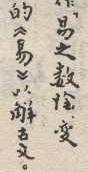 易之数陰变
的《易》以解古文。